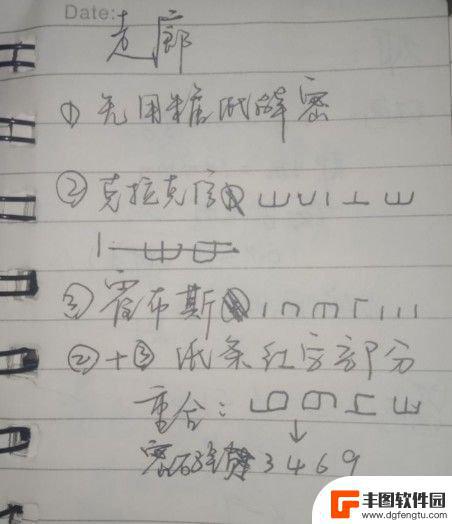 Date:
走廊
① 先用糖纸解密
② 克拉克信
③ 霍布斯
②+③ 纸条红字部分
重合:
密码 3469
丰图软件园
www.dgfengtu.com